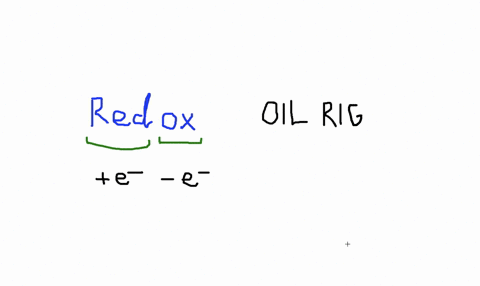 Redox OIL RIG
+e⁻ −e⁻